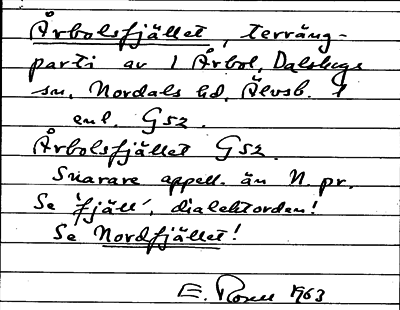 Årbolsfjället, terräng-
parti av 1 Årbol, Dalskogs
sn, Nordals hd, Älvsb. l
enl. Gsz.
Årbolsfjället Gsz.
Snarare appell. än N. pr.
Se 'fjäll', dialektorden!
Se Nordfjället!
E. Rosell 1963